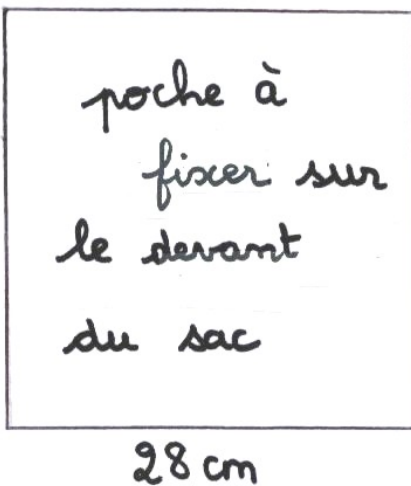 poche à
fixer sur
le devant
du sac
28 cm